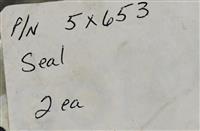 P/N 5X653
Seal
2 ea